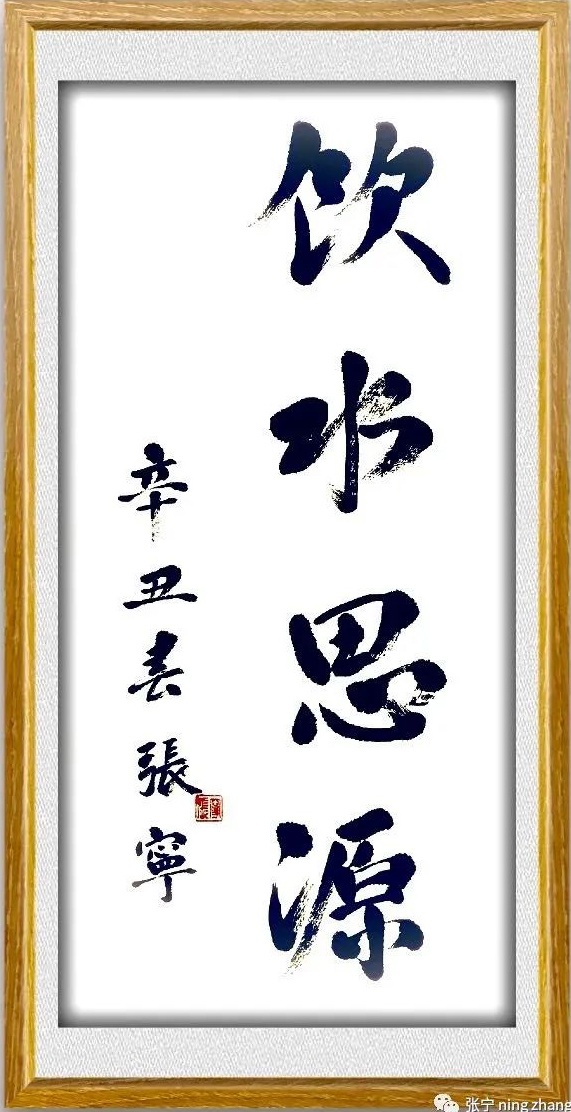 饮水思源
辛丑春張寧
张宁 ning zhang